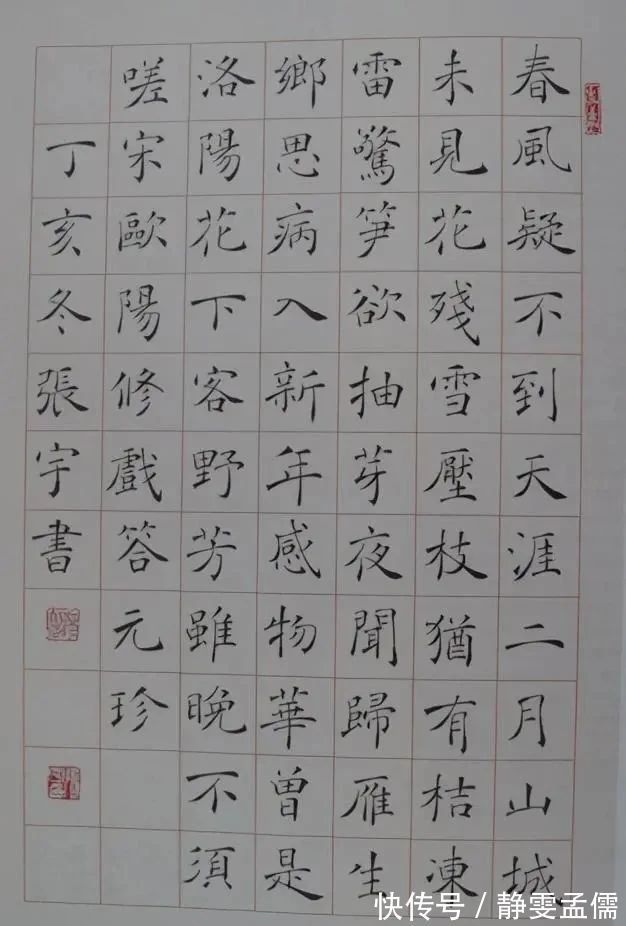 春風疑不到天涯二月山城
未見花殘雪壓枝猶有桔凍
雷驚笋欲抽芽夜聞歸雁生
鄉思病入新年感物華曾是
洛陽花下客野芳雖晚不須
嗟宋歐陽修戲答元珍
丁亥冬張宇書
快传号／静雯孟儒